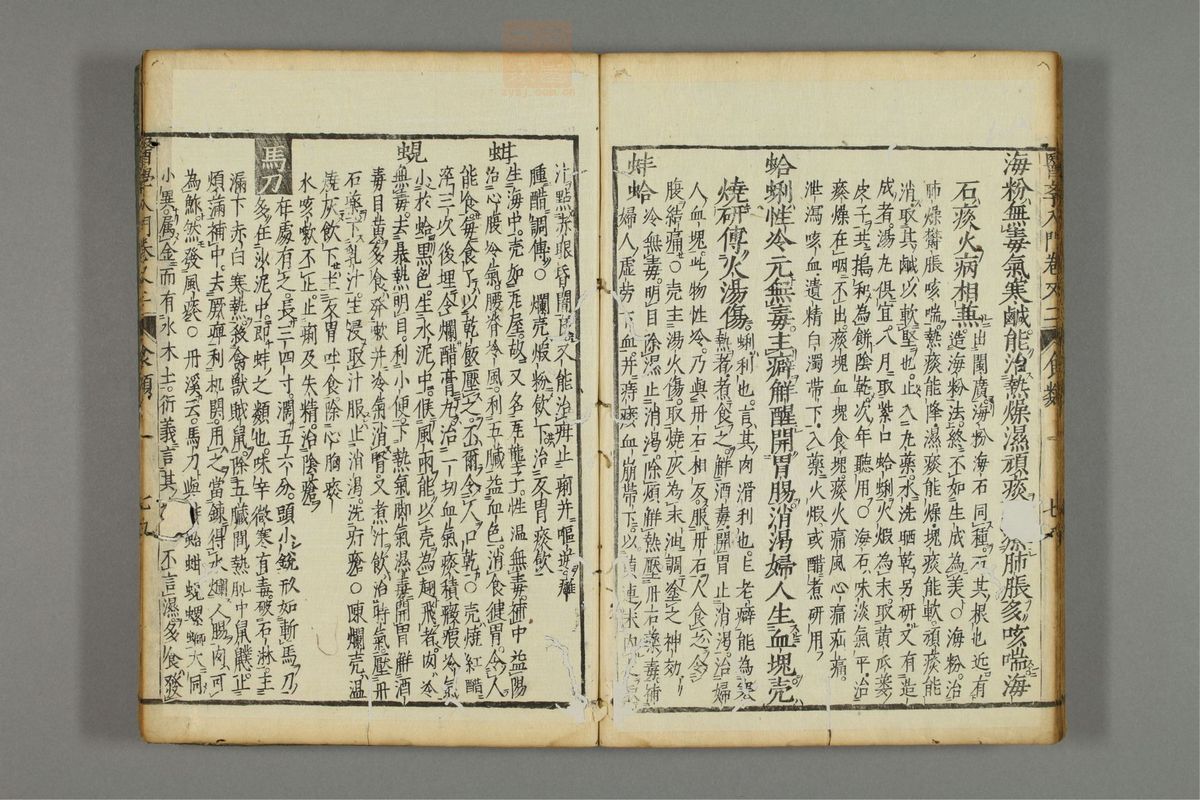 海粉無毒氣寒鹹能治熱燥濕頑痰肺脹亥咳喘海
石痰火病相兼出閩廣海粉海石同種石其根也近有
造海粉法終不如生成為美○海粉治
肺燥鬱脹咳喘熱痰能降濕痰能燥塊痰能軟頑痰能
消取其鹹以軟堅也止入丸藥水洗晒乾另研又有造
成者湯丸俱宜八月取紫口蛤蜊火煅為末取黃瓜蔞
皮子共搗和為餅陰乾次年聽用○海石味淡氣平治
痰燥在咽不出痰塊血塊食塊痰火痛痰風心痛疝痛
泄瀉咳血遺精白濁帶下入藥火煅或醋煮研用
蛤蜊性冷元無毒主癖解酲開胃腸消渴婦人生血塊壳
燒研傅火湯傷蜊利也言其肉滑利也主老癖能為寒
熱者煮食之解酒毒開胃止消渴治婦
人血塊此物性冷乃與丹石相反服丹石人食之令
腹結痛○壳主湯火傷取燒灰為末油調塗之神効
蚌蛤冷無毒明目除濕止消渴除煩解熱壓丹石藥毒補
婦人虛勞下血并痔瘻血崩帶下以黃連末內之取
汁點赤眼昏闇良又能治毋止痢并嘔逆癰
腫醋調傅○爛壳煅粉飲下治反胃痰飲
蚶生海中壳如瓦屋故又名瓦壟子性温無毒補中益陽
治心腹冷氣腰脊冷風利五臟益血色消食健胃令人
能食每食了以乾飯壓之不爾令人口乾○壳燒紅醋
淬三次後埋令爛醋膏丸治一切血氣痰積癥瘕冷氣
蜆小於蛤黑色生水泥中候風雨能以壳為翅飛者肉冷
無毒去暴熱明目利小便下熱氣脚氣濕毒開胃解酒
毒目黃多食發嗽并冷氣消腎又煮汁飲治時氣壓丹
石藥下乳汁生浸取汁服止消渴洗疔瘡○陳爛壳温
燒灰飲下主反胃吐食除心胸痰
水咳嗽不止止痢及失精治陰瘡
馬刀在處有之長三四寸濶五六分頭小銳形如斬馬刀
多在沙泥中即蚌之類也味辛微寒有毒破石淋主
漏下赤白寒熱殺禽獸賊鼠除五臟間熱肌中鼠䑕止
煩滿補中去厥痺利机関用之當鍊得水爛人腸肉可
為鮓然發風痰○丹溪云馬刀與蛤蚌蚶蜆螺螄大同
小異属金而有水木土衍義言其冷不言濕多食發